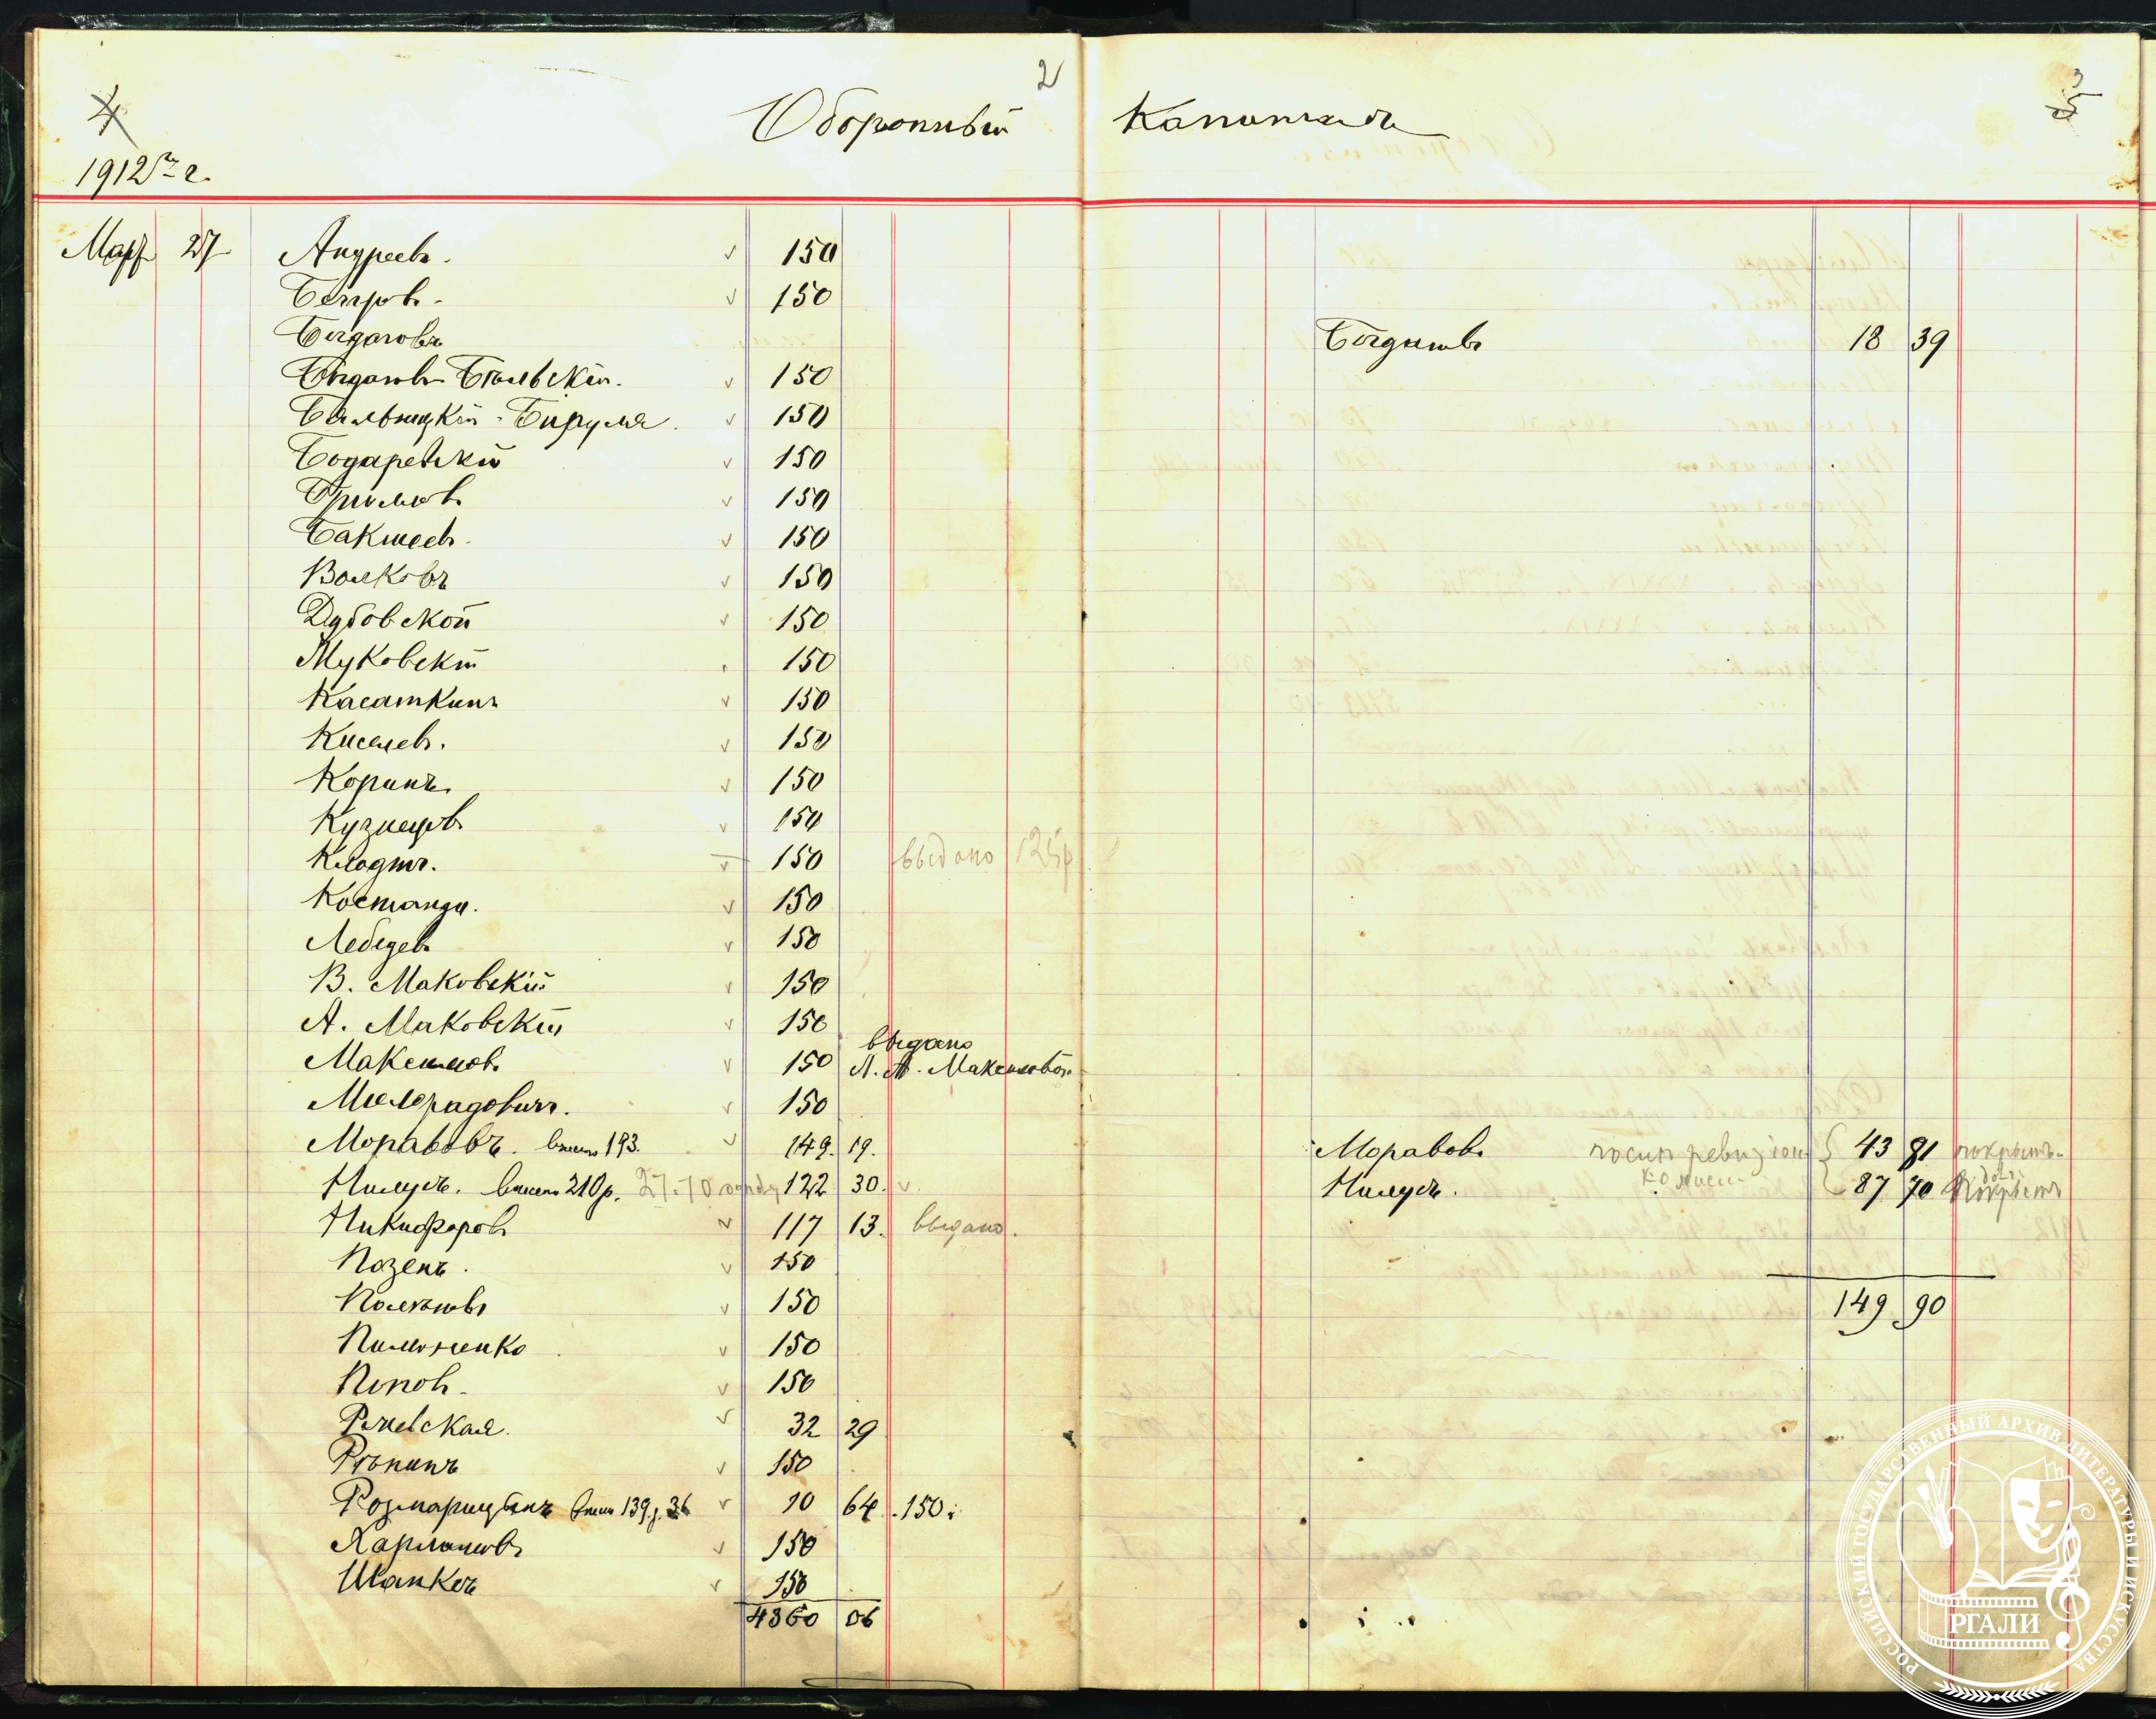 2
4
1912 г.
Оборотный
Март 27 Андреевъ. v 150
Бытровъ. v 150
Богдановъ
Богдановъ-Бѣльскій. v 150
Бялыницкій-Бируля. v 150
Бодаревскій v 150
v 150
Бакшеевъ. v 150
Волковъ v 150
Дубовской v 150
Жуковскій 150
Касаткинъ v 150
Киселевъ. v 150
Коринъ. v 150
Кузнецовъ v 150
Клодтъ. v 150 выдано 125р
Костанди. v 150
Лебедевъ v 150
В. Маковскій v 150
А. Маковскій v 150
выдано
Максимовъ v 150 Максимовой
Милорадовичъ. v 150
Моравовъ. внесено 193. v 149. 19.
Нилусъ. внесено 210р. 122 30. v.
Никифоровъ v 117 13. выдано.
Позенъ. v 150
v 150
Пимоненко v 150
Поповъ. v 150
Ржевская. v 32 29
Рѣпинъ v 150
Розмарицынъ 139р. 36 v 10 64 150
Харламовъ v 150
Шанксъ v 150
4360 06
Капиталъ
3
5
Богдановъ 18 39
Моравовъ ревизіон 43 81 покрытъ.
Нилусъ. комисс. 87 70 покрытъ
149 90
РОССИЙСКИЙ ГОСУДАРСТВЕННЫЙ АРХИВ ЛИТЕРАТУРЫ И ИСКУССТВА
РГАЛИ